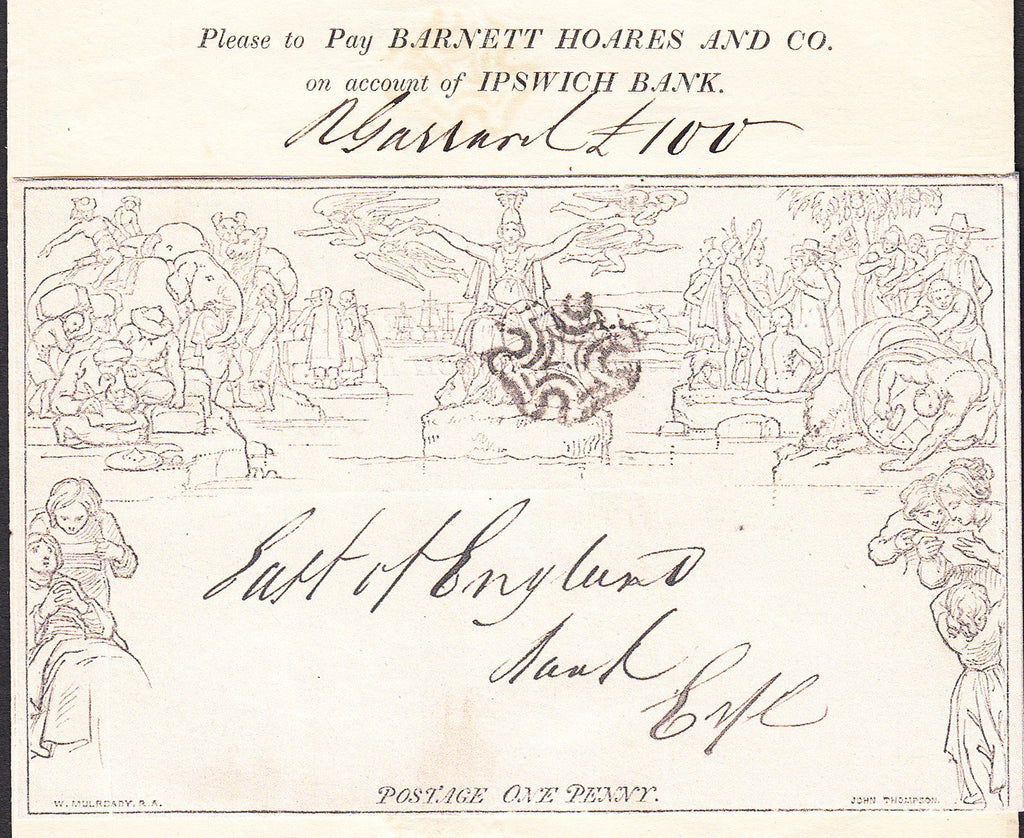 Please to Pay BARNETT HOARES AND CO.
on account of IPSWICH BANK.
R Garrard £100
East of England
Bank
Eye
POSTAGE ONE PENNY.
W. MULREADY. R.A.
JOHN THOMPSON.